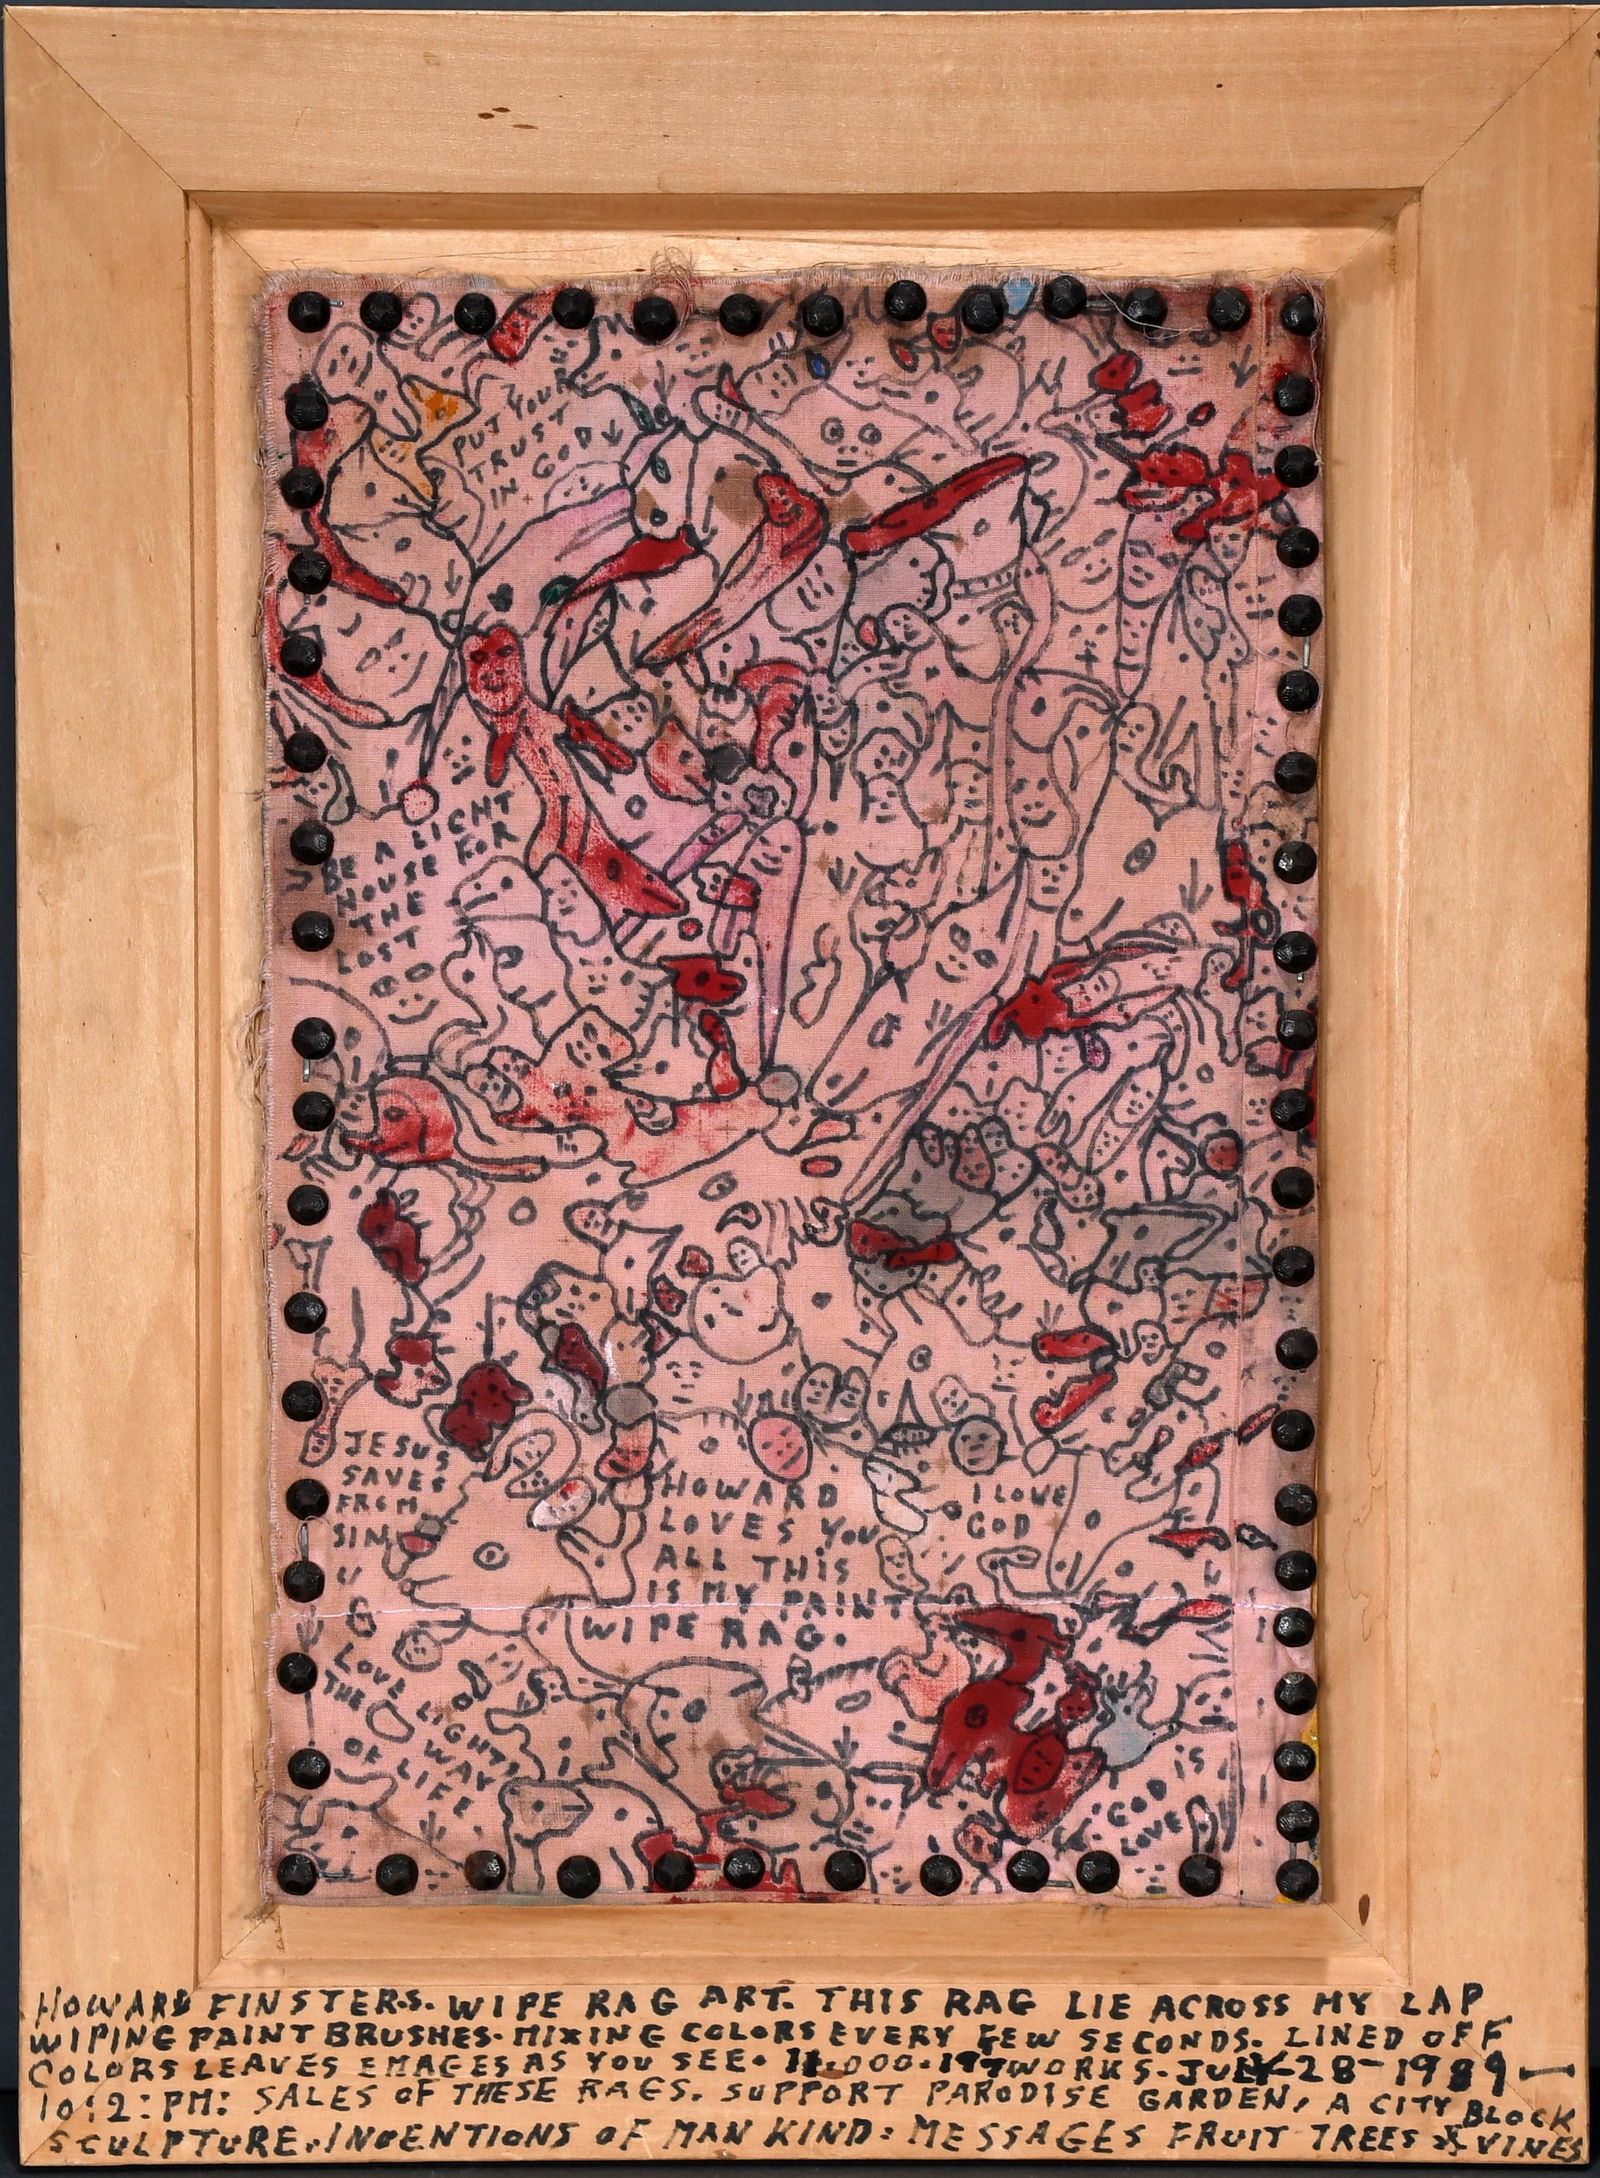 PUT YOUR
TRUST
IN GOD
BE A LIGHT
HOUSE FOR
THE
LOST
JESUS
SAVES
FROM
SIN
HOWARD
LOVES YOU
ALL THIS
IS MY PAINT
WIPE RAG.
I LOVE
GOD
LOVE LIGHTS
THE WAY
OF LIFE
GOD IS
LOVE
HOWARD FINSTER.S. WIPE RAG ART. THIS RAG LIE ACROSS MY LAP
WIPING PAINT BRUSHES. MIXING COLORS EVERY FEW SECONDS. LINED OFF
COLORS LEAVES EMAGES AS YOU SEE. 11.000.197 WORKS. JULY-28-1989—
10:2:PM: SALES OF THESE RAGS. SUPPORT PARODISE GARDEN, A CITY BLOCK
SCULPTURE. INVENTIONS OF MAN KIND: MESSAGES FRUIT TREES & VINES